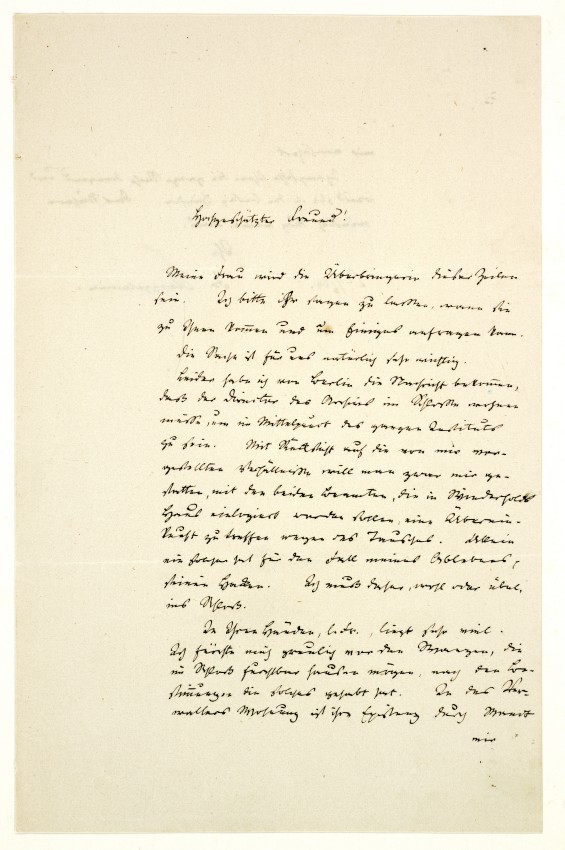 Hochgeschätzter Freund!
Meine Frau wird die Überbringerin dieser Zeilen
sein. Ich bitte ihr sagen zu lassen, wann sie
zu Ihnen kommen und um Einiges anfragen kann.
Die Sache ist für uns natürlich sehr wichtig.
Leider habe ich von Berlin die Nachricht bekommen,
daß der Direktor des Archivs im Schlosse wohnen
müsse, um im Mittelpunkt des ganzen Instituts
zu sein. Mit Rücksicht auf die von mir vor-
gestellten Verhältnisse will man zwar mir ge-
statten, mit den beiden Beamten, die in
Haus einlogiert werden sollen, eine Überein-
kunft zu treffen wegen des Tausches. Allein
ein solcher hat für den Fall meines Ablebens,
seinen Haken. Ich muß daher, wohl oder übel,
ins Schloß.
In Ihren Händen, liegt sehr viel.
Ich fürchte mich greulich vor den die
im Schloß furchtbar hausen mögen, nach den Be-
stimmungen die solches gehabt hat. In des Ver-
walters Wohnung ist ihre Existenz durch
mir